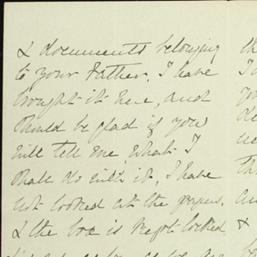 & documents belonging
to your Father. I have
brought it here, and
should be glad if you
will tell me what I
shall do with it, I have
not looked at the papers,
& the box is kept locked